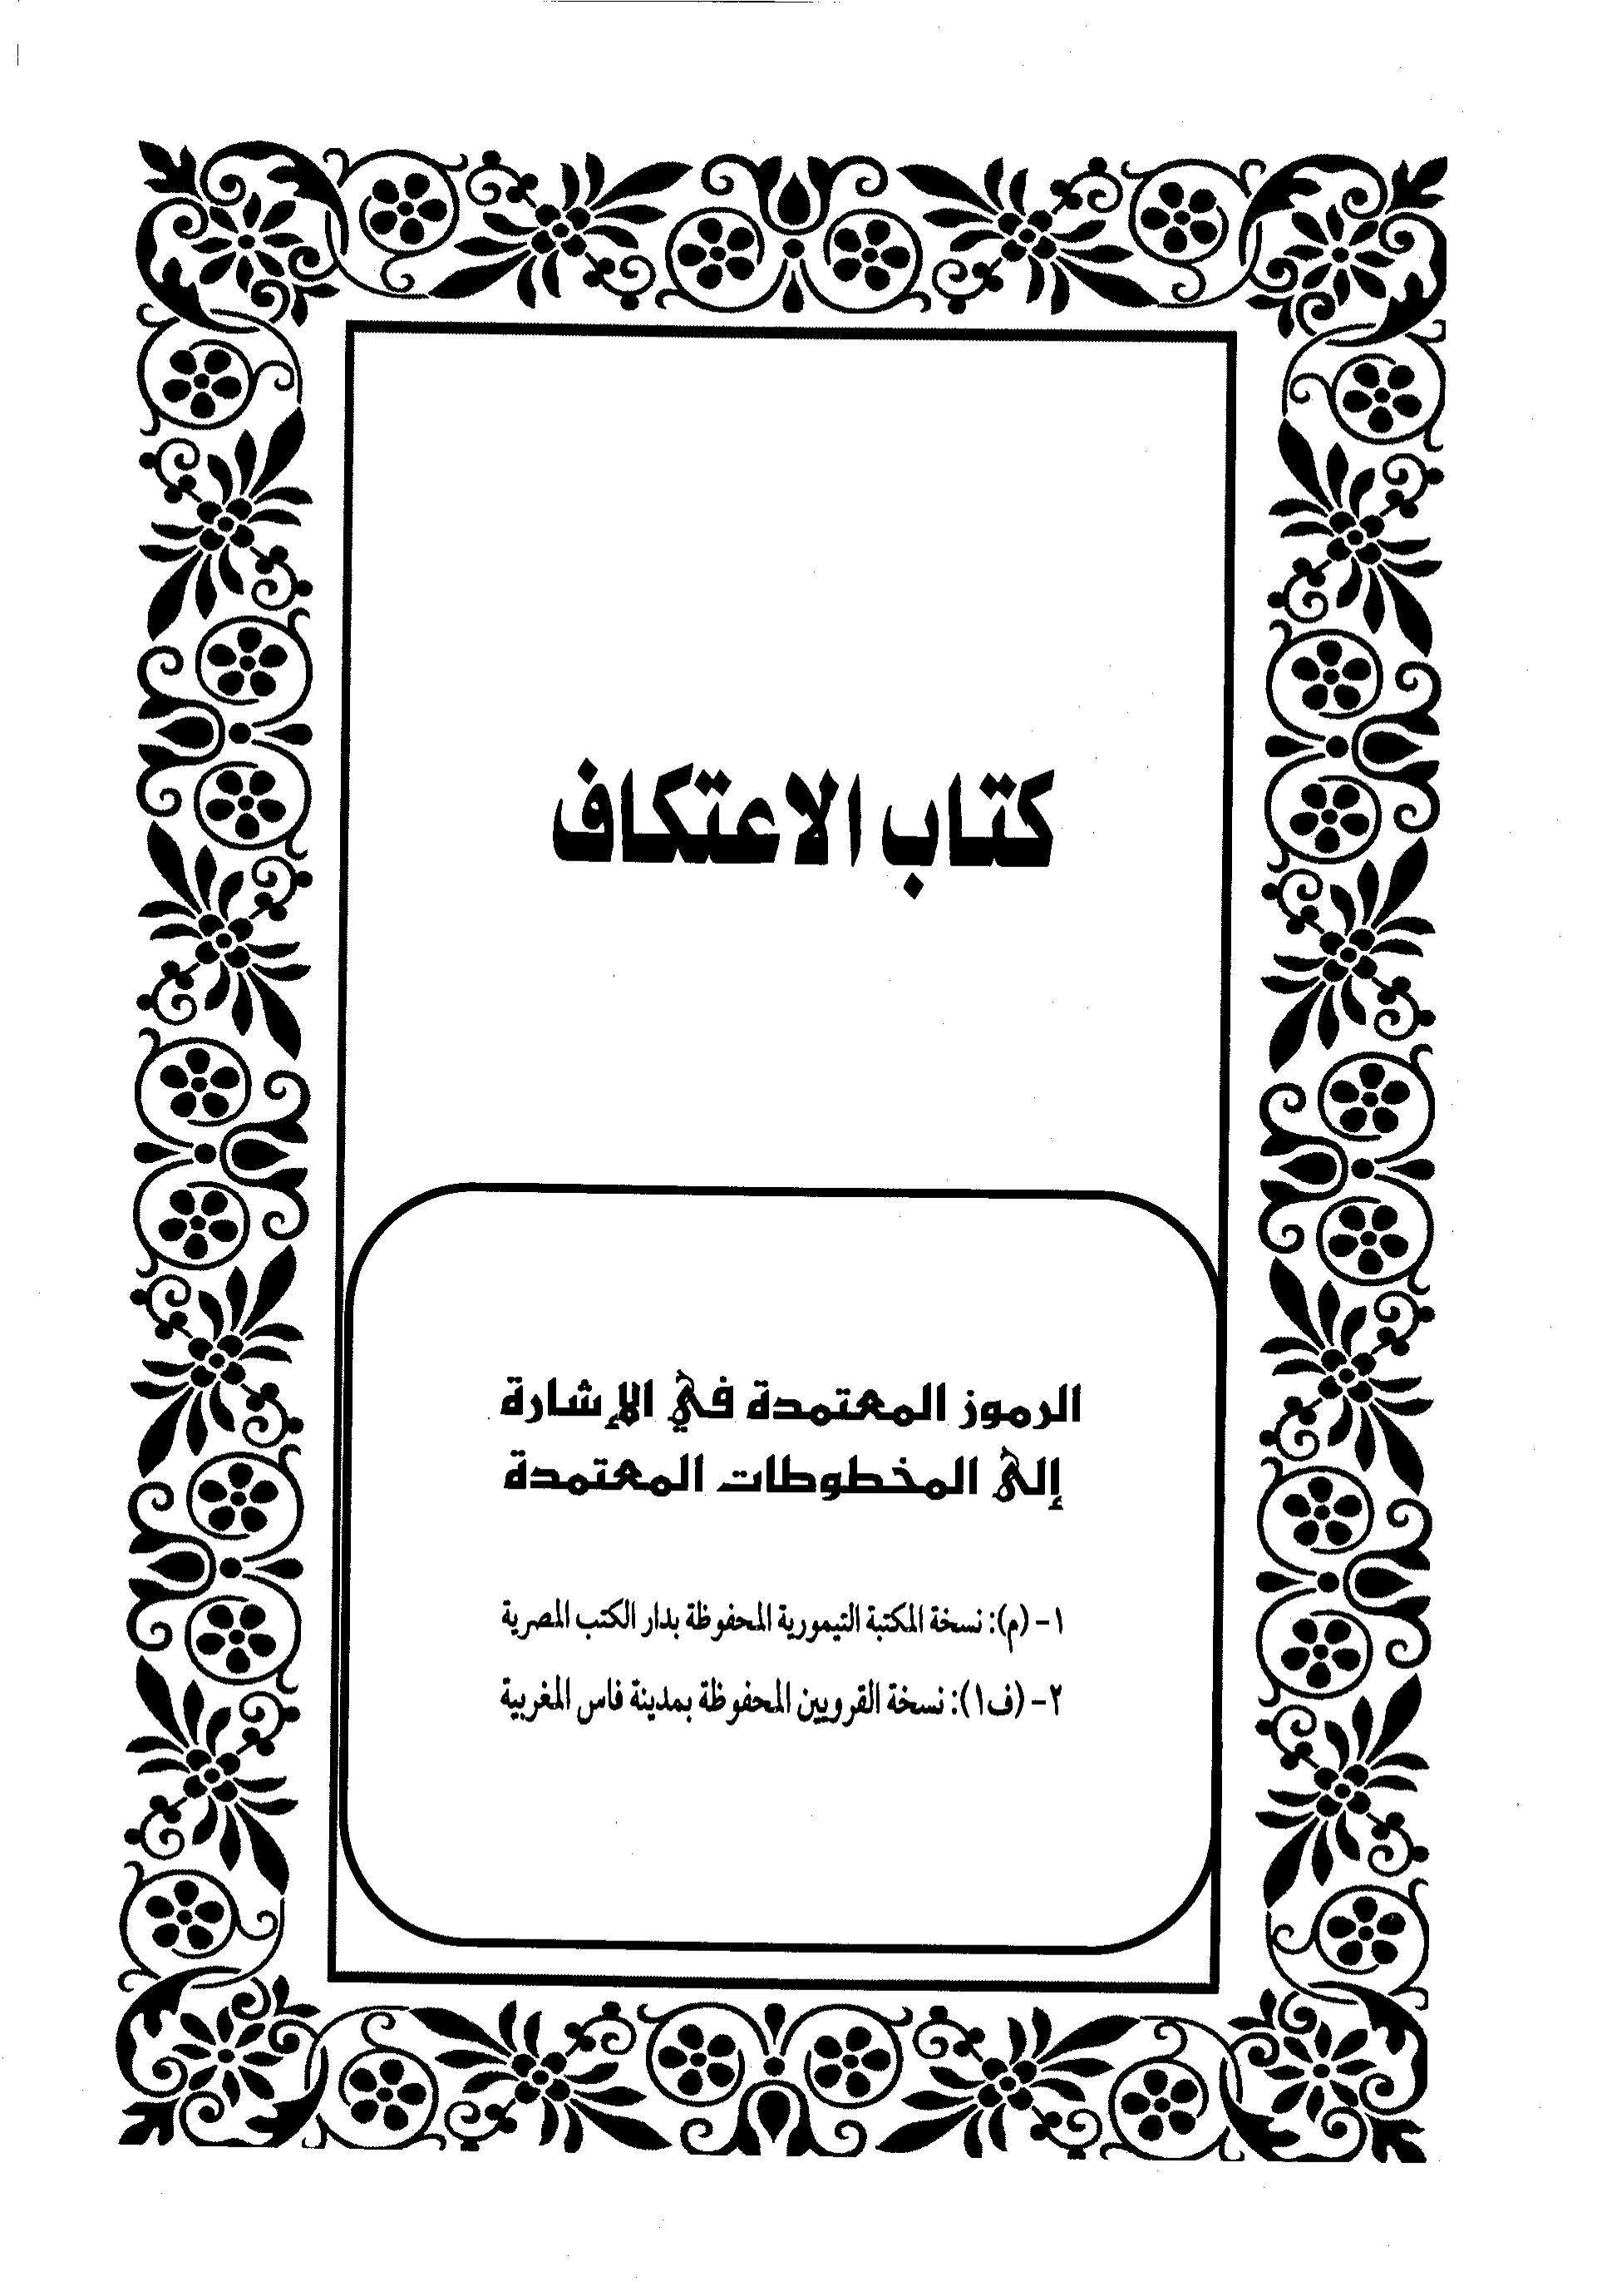 كتاب الاعتكاف
الرموز المعتمدة في الإشارة
إلى المخطوطات المعتمدة
١- (م): نسخة المكتبة التيمورية المحفوظة بدار الكتب المصرية
٢- (ف١): نسخة القرويين المحفوظة بمدينة فاس المغربية